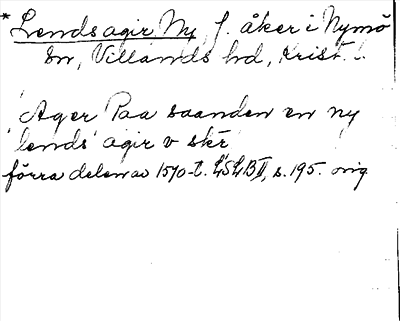 * Lends agir Ny f. åker i Nymö
sn, Villands hd, Krist. l.
'Ager Paa saanden en ny
lends' agir v skr
förra delen av 1570-t. LSLB II, s. 195. orig